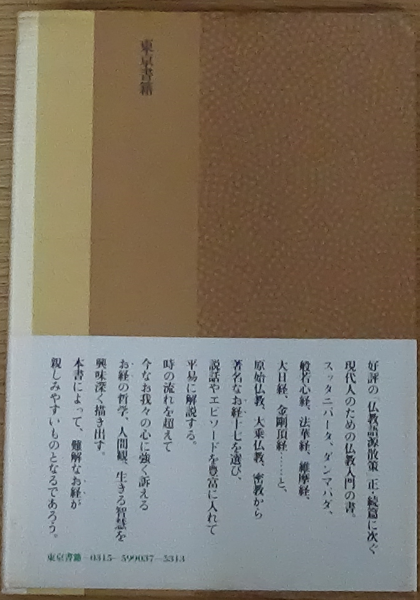 東京書籍
好評の『仏教語源散策』正・続篇に次ぐ
現代人のための仏教入門の書。
スッタニパータ、ダンマパダ、
般若心経、法華経、維摩経、
大日経、金剛頂経……と、
原始仏教、大乗仏教、密教から
著名なお経十七を選び、
説話やエピソードを豊富に入れて
平易に解説する。
時の流れを超えて
今なお我々の心に強く訴える
お経の哲学、人間観、生きる智慧を
興味深く描き出す。
本書によって、難解なお経が
親しみやすいものとなるであろう。
東京書籍—0315—599037—5313